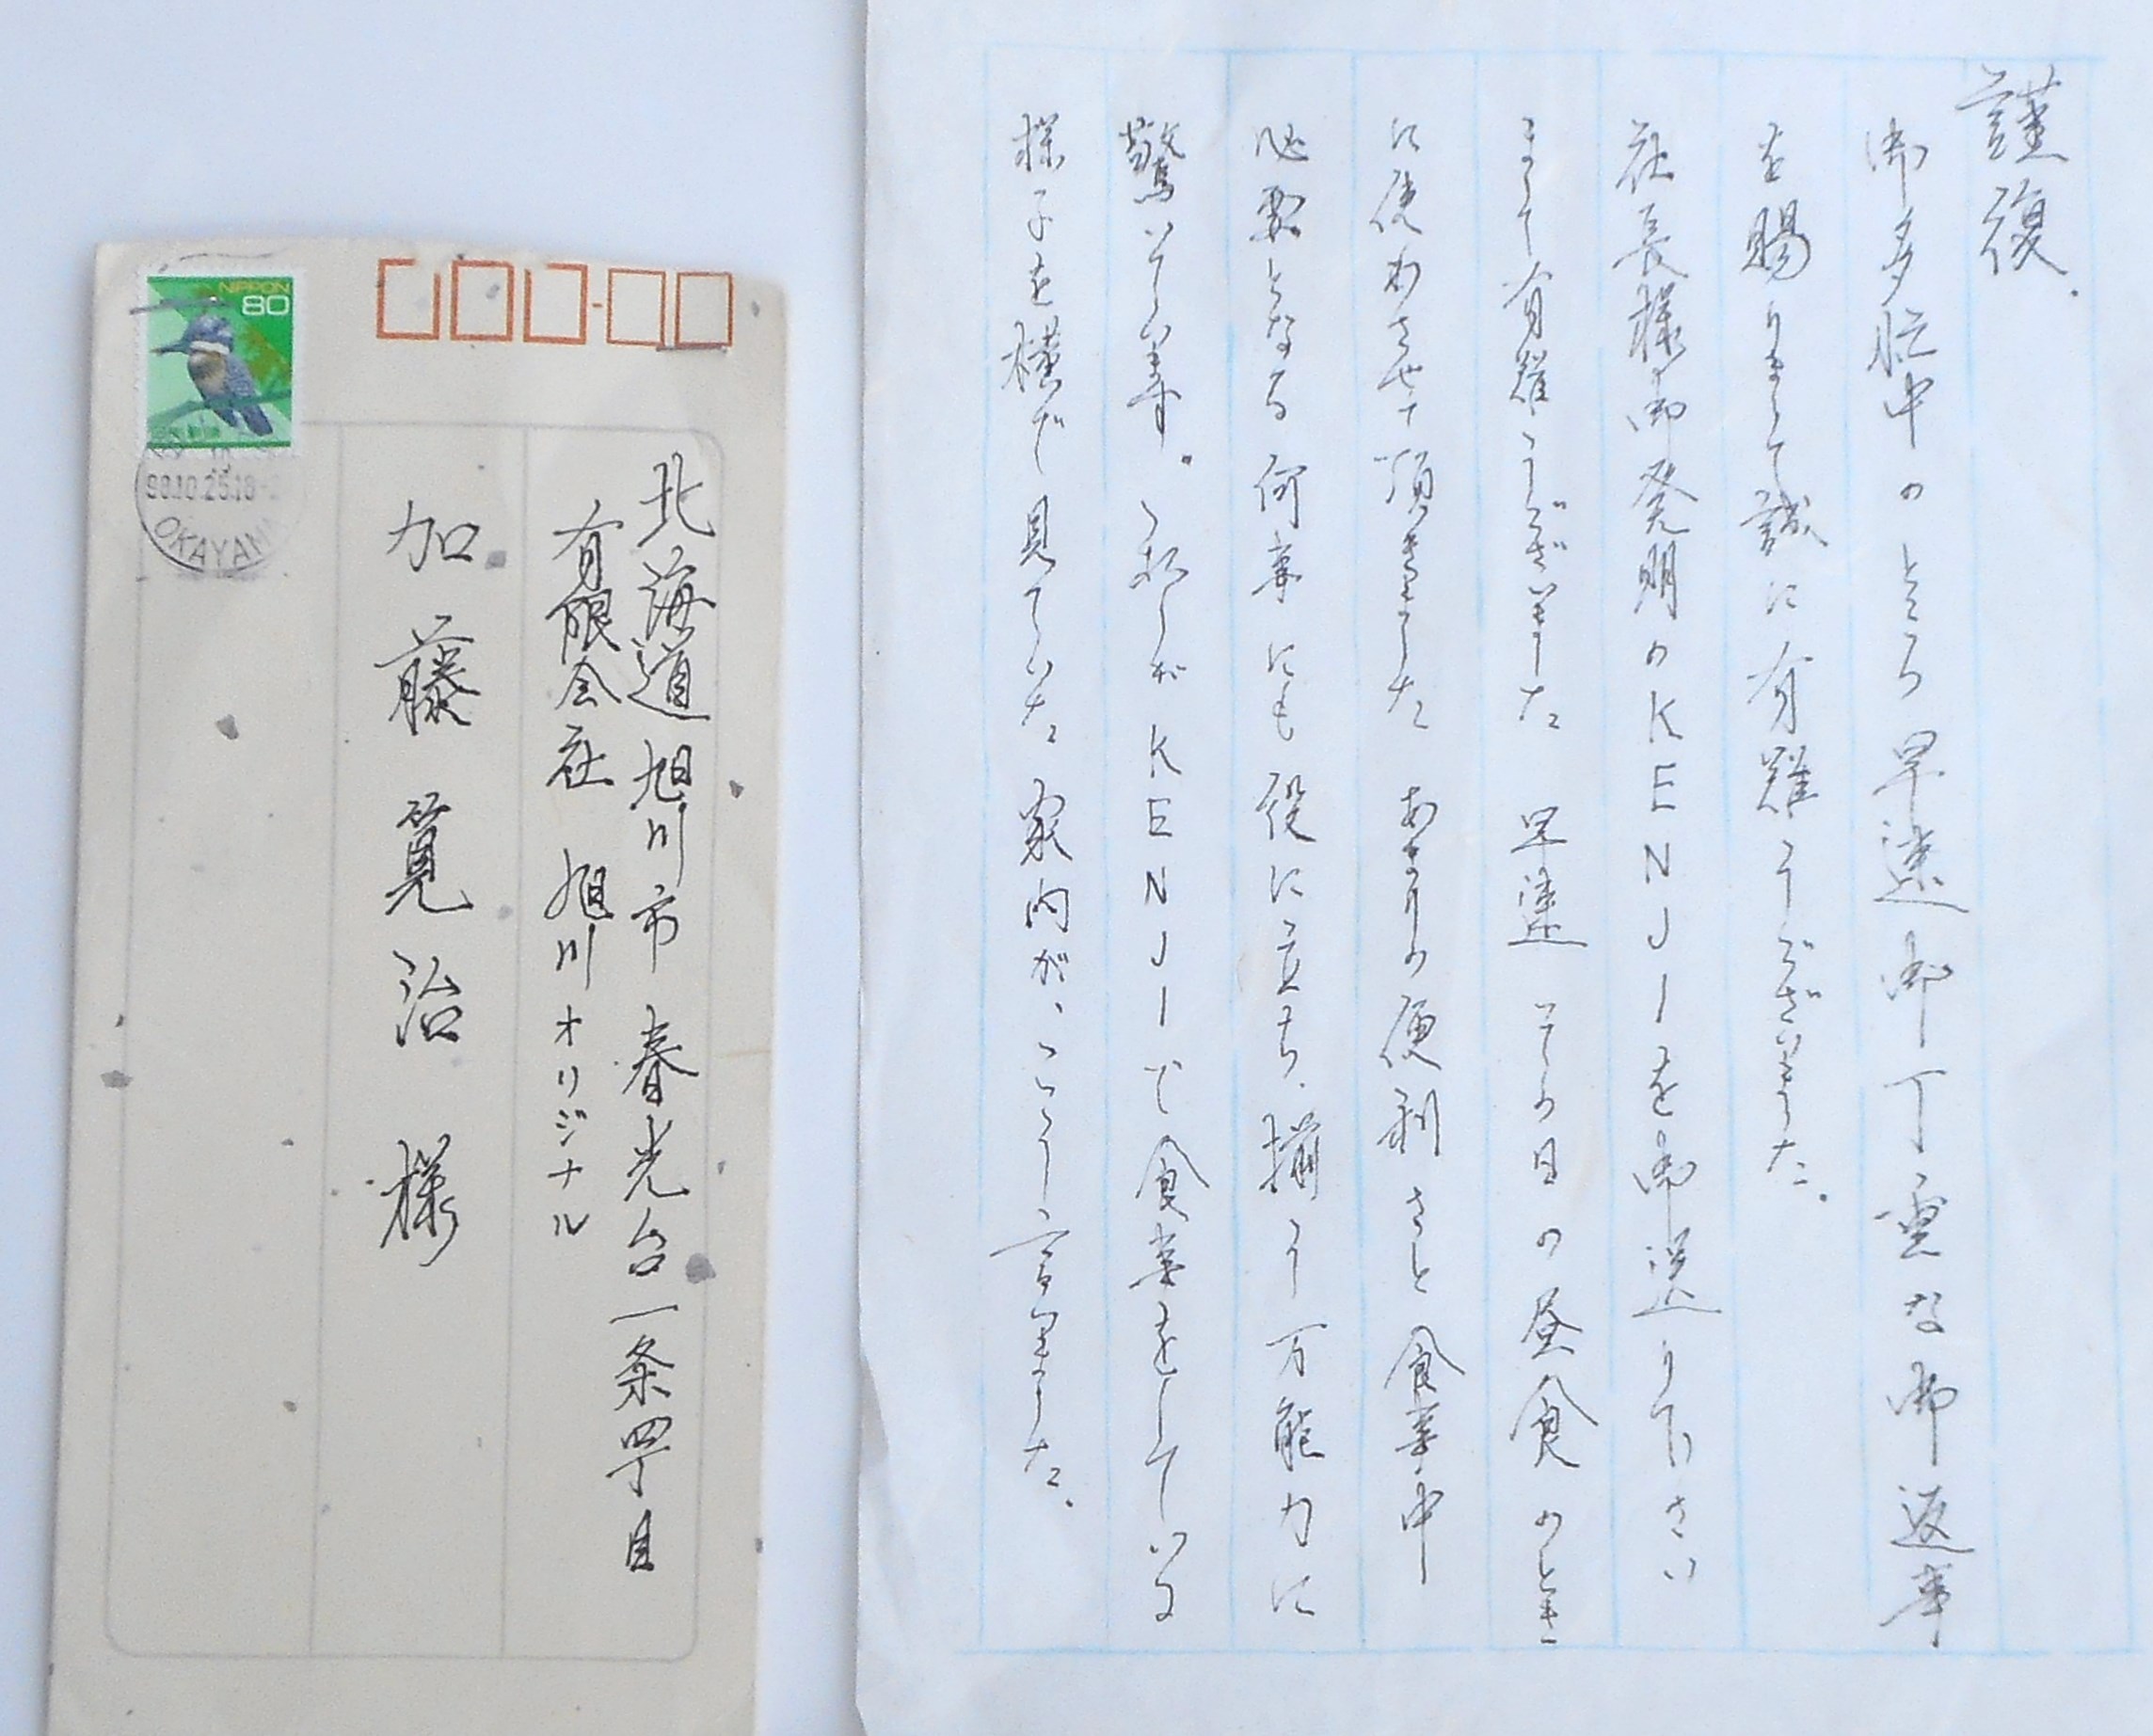 謹復.
御多忙中のところ早速御丁重な御返事
を賜りまして誠に有難うございました.
社長様御発明のKENJIを御送り下さい
まして有難うございました 早速 その日の昼食のとき
に使わさせて頂きました あまりの便利さと食事中
必要となる何事にも役に立ち、揃う万能力に
驚いています。 私がKENJIで食事をしている
様子を横で見ていた家内が、こう言いました.
NIPPON
80
98.10.25.18-
OKAYAMA
北海道旭川市 春光台一条四丁目
有限会社 旭川オリジナル
加藤筧治様